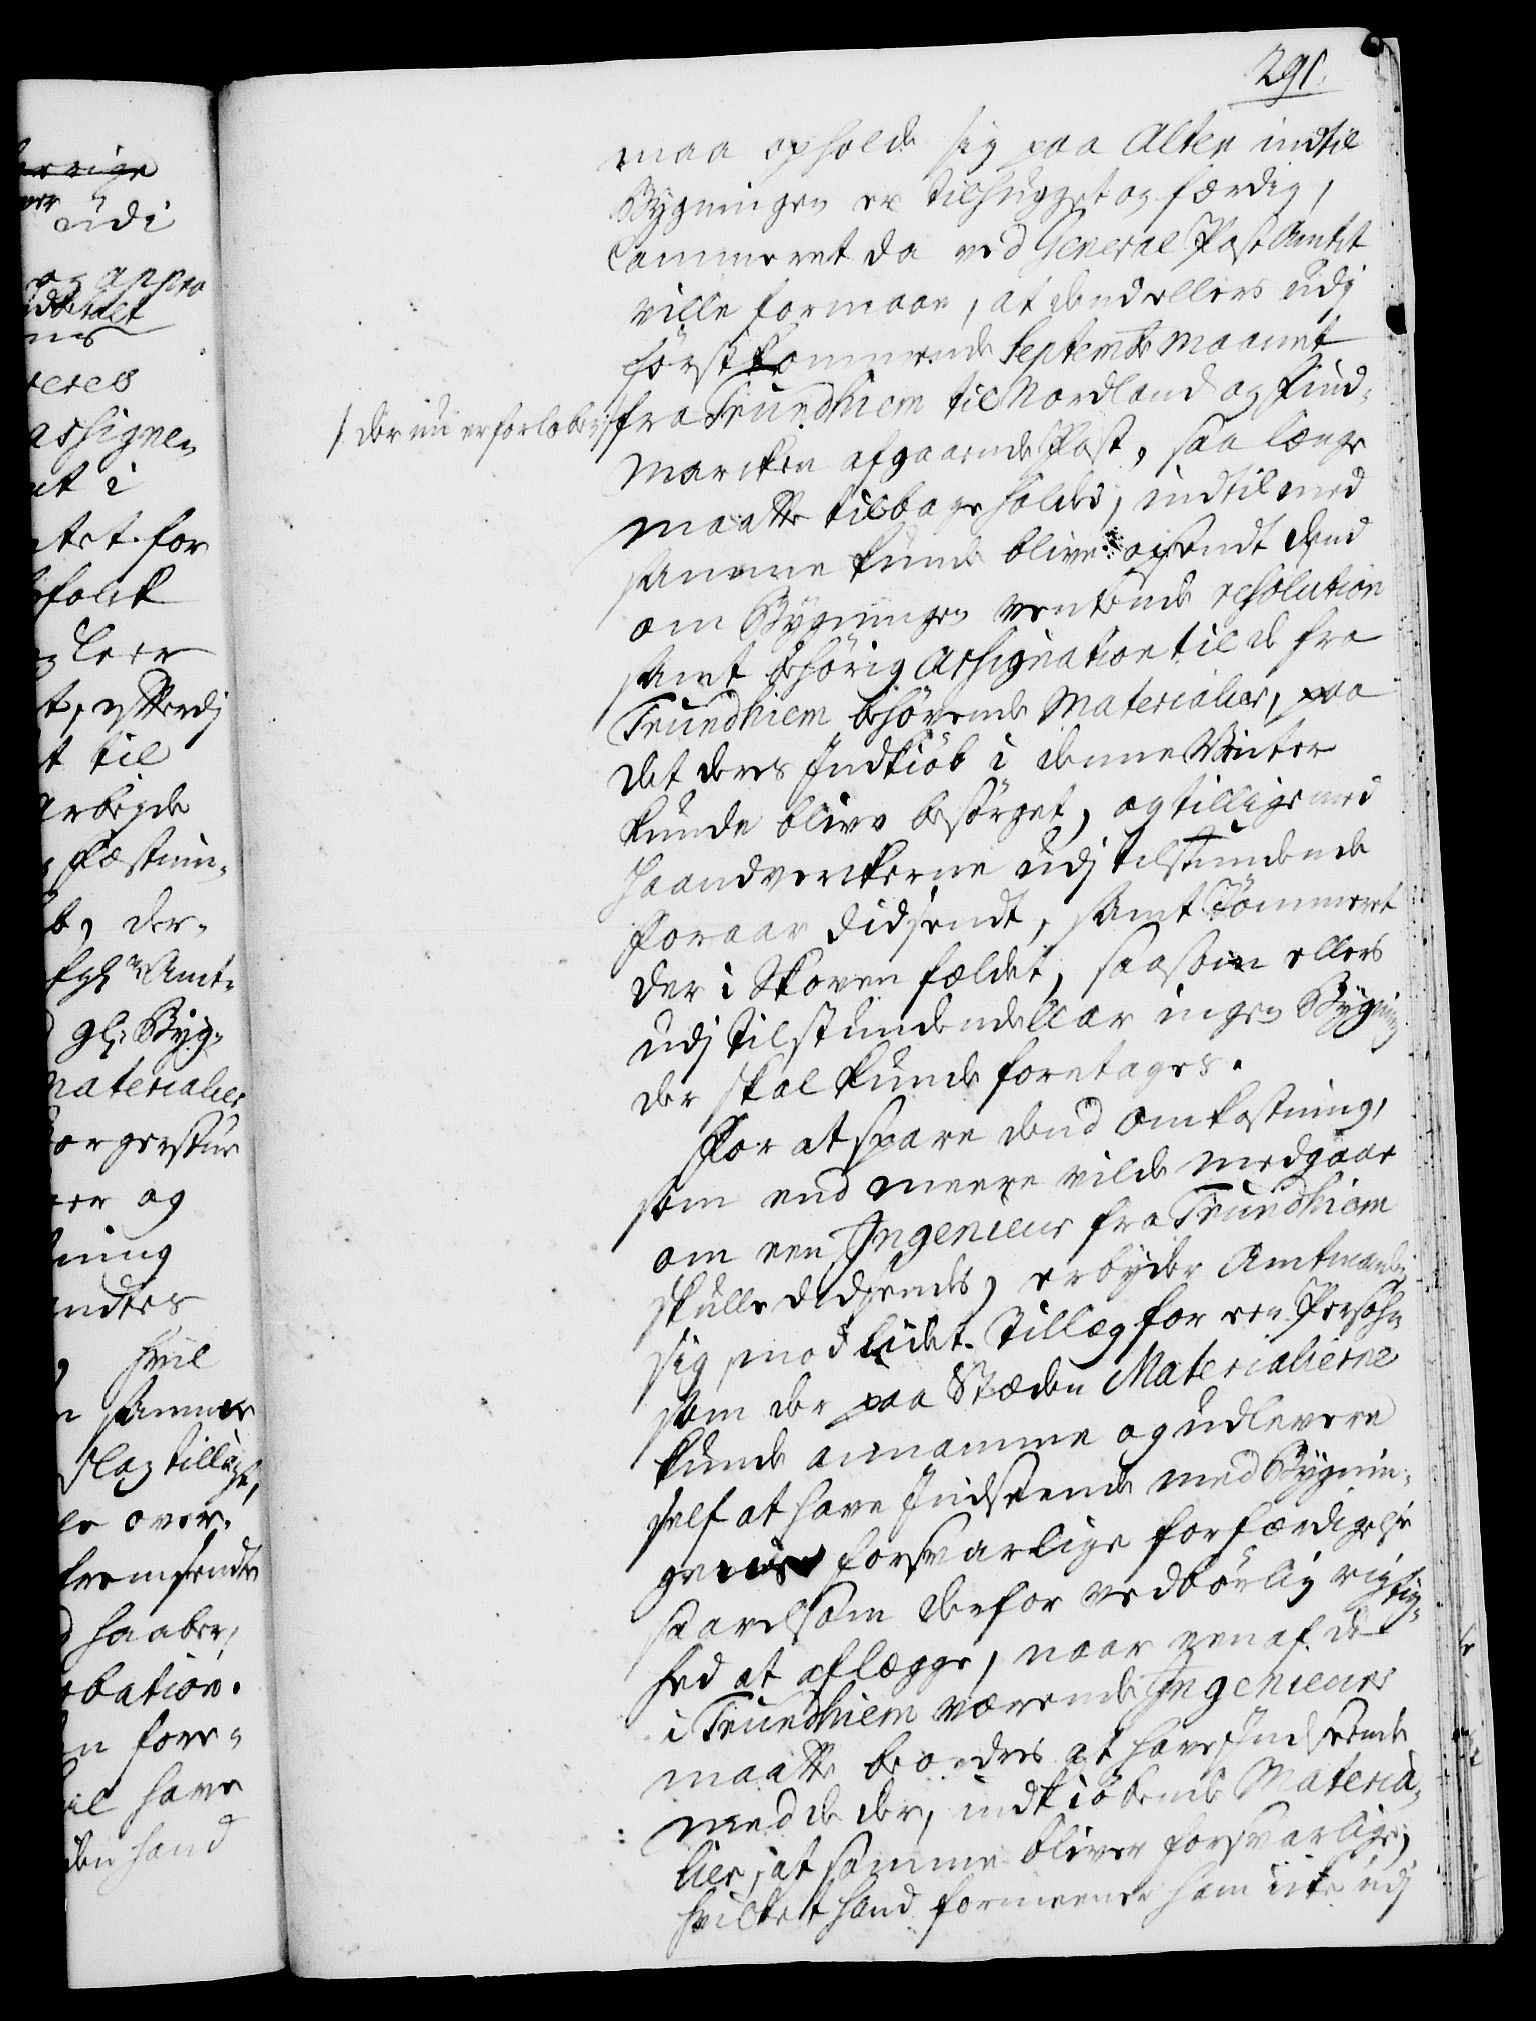 291.
maa opholde sig paa Alten indtil
Bygningen er tilhugget og færdig,
Cammeret da ved General Post Amtet
ville formaae, at dend ellers udj
först kommende Septembr Maanet
/: der nu er forløben :/
fra Trundhiem til Nordland og Find-
marcken afgaaende Post, saa længe
maatte tilbageholdes, indtil med
samme kunde blive afsendt dend
om Bygningen ventende resolution
samt behörig Assignation til de fra
Trundhiem behövende Materialier, paa
det deres Indkiöb i denne Vinter
kunde blive besörget, og tillige med
Haandverckerne udj tilstundende
Foraar didsendt, samt Tömmeret
der i Skoven fældet, saasom ellers
udj tilstundende Aar ingen Bygning
der skal kunde foretages.
For at spare dend Omkostning,
som end meere vilde medgaae
om een Ingenieur fra Trundhiem
skulle didsendes, erbyder Amtmanden
sig, mod lidet Tillæg for een Persohn
som der paa Stæden Materialierne
kunde annamme og udlevere
self at have Indseende med Bygnin-
gens forsvarlige forfærdigelse
saavelsom derfor vedbörlig rigtig-
hed at aflægge, naar een af de
i Trundhiem værende Ingenieurs
maatte beordres at have Indseende
med de der, indkiöbende Materia-
lier, at samme bliver forsvarlige,
hvilket hand formeener ham icke udj